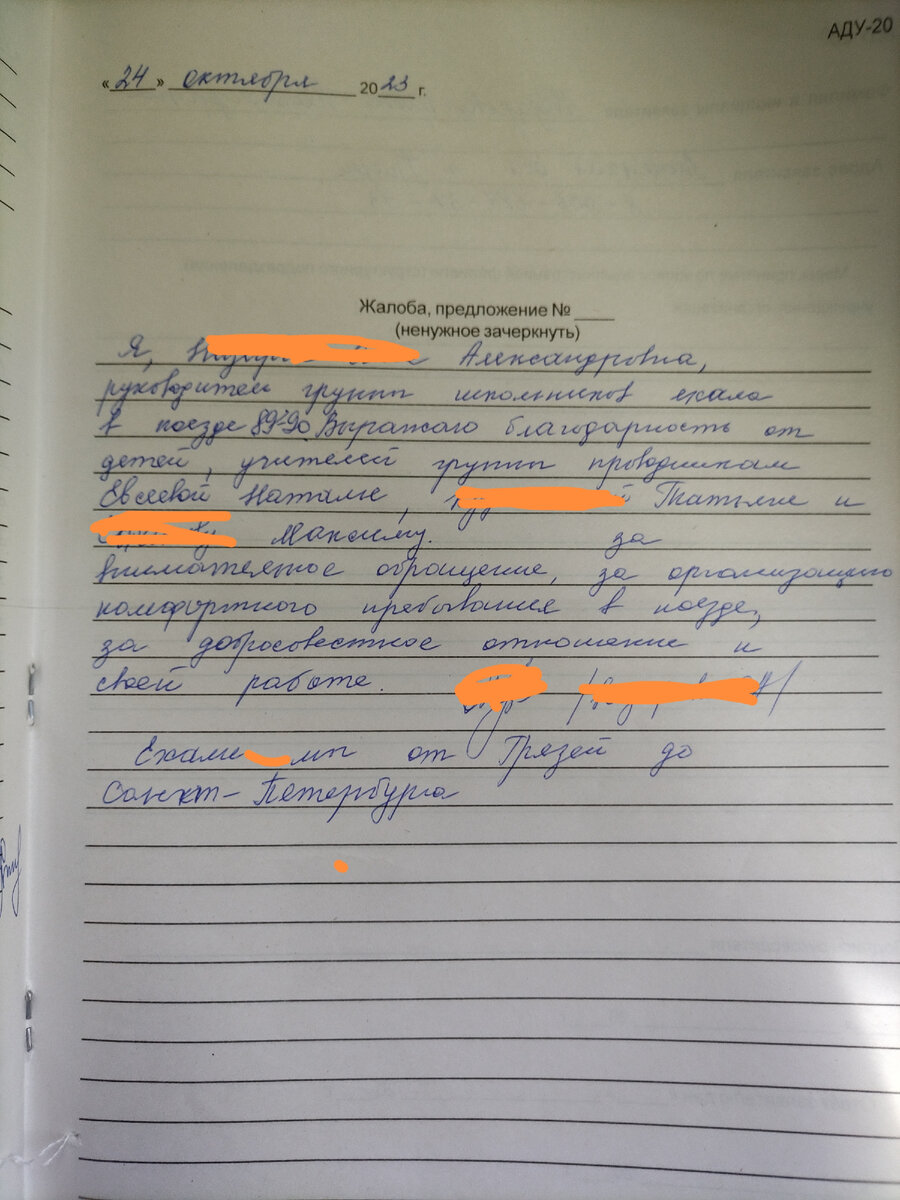 АДУ-20
«24» октября 2023 г.
Жалоба, предложение № ____
(ненужное зачеркнуть)
Я, Александровна,
руководитель группы школьников ехала
в поезде 89-90. Выражаю благодарность от
детей, учителей группы проводникам
Евсеевой Наталье, Татьяне и
Максиму. за
внимательное обращение, за организацию
комфортного пребывания в поезде,
за добросовестное отношение к
своей работе.
Ехали мы от Грязей до
Санкт-Петербурга